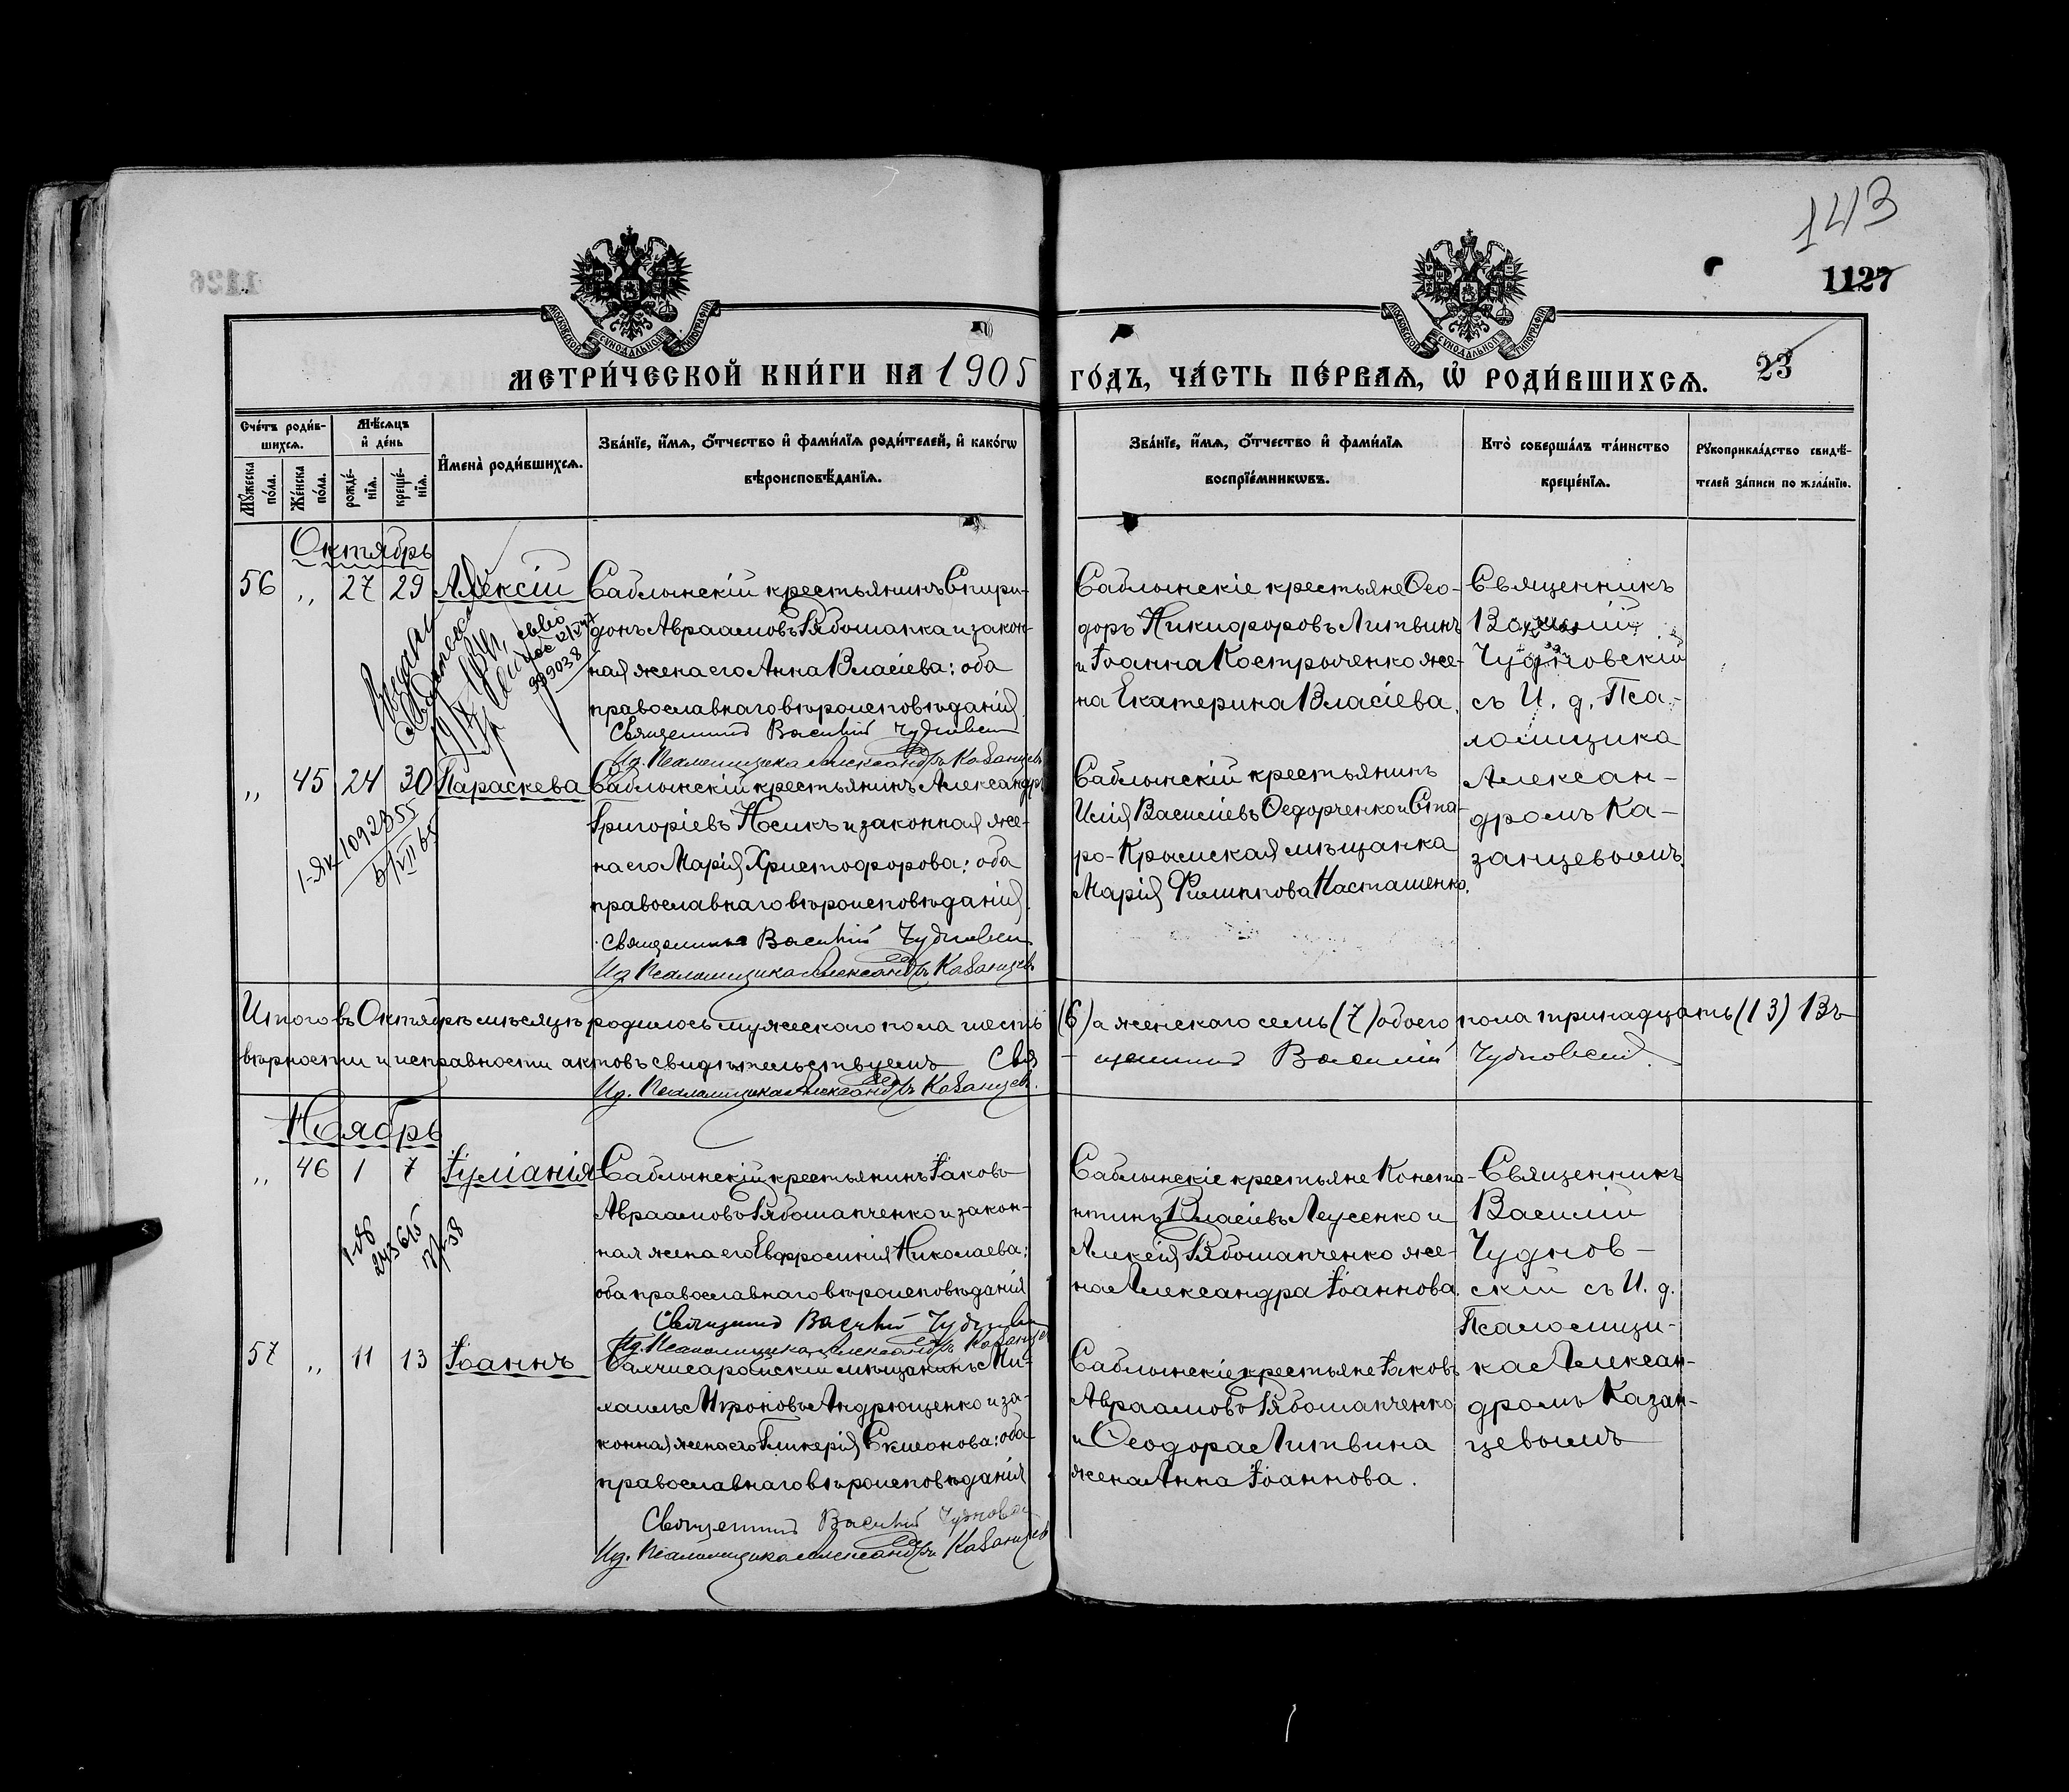 143
1127
1126
МОСКОВСКОЙ СУНОДАЛЬНОЙ ТИПОГРАФІИ
МОСКОВСКОЙ СУНОДАЛЬНОЙ ТИПОГРАФІИ
МЕТРИ́ЧЕСКОЙ КНИ́ГИ НА 1905 ГО́ДЪ, ЧА́СТЬ ПЕ́РВАѦ, Ѡ҆ РОДИ́ВШИХСѦ. 23
Сче́тъ роди́в-
шихсѧ.
Мꙋ́жеска по́ла.
Же́нска по́ла.
Мѣ́сѧцъ
и҆ де́нь
рожде́-
нїѧ.
креще́-
нїѧ.
И҆мена̀ роди́вшихсѧ.
Зва́нїе, и҆́мѧ, ѻ҆́тчество и҆ фами́лїѧ роди́телей, и҆ како́гѡ
вѣроисповѣ́данїѧ.
Зва́нїе, и҆́мѧ, ѻ҆́тчество и҆ фами́лїѧ
воспрїе́мникѡвъ.
Кто̀ соверша́лъ та́инство
креще́нїѧ.
Рꙋкоприкла́дство свидѣ́-
телей за́писи по жела́нїю.
Октябрь
56 „ 27 29 Алексій
Саблынскій крестьянинъ Спири-
донъ Авраамовъ Рябошапка и закон-
ная жена его Анна Власіева: оба
православнаго вѣроисповѣданія.
Священникъ Василій Чудновскій
Ид. Псаломщика Александръ Казанцевъ
Саблынскіе крестьяне Ѳео-
доръ Никифоровъ Литвинъ
и Іоанна Костроменко же-
на Екатерина Власіева.
Священникъ
Василій
Чудновскій
съ И. д. Пса-
ломщика
Алексан-
дромъ Ка-
занцевымъ.
„ 45 24 30 Параскева
1-Як 1092355
Саблынскій крестьянинъ Александръ
Григоріевъ Носикъ и законная же-
на его Марія Христофорова: оба
православнаго вѣроисповѣданія.
Священникъ Василій Чудновскій
Ид. Псаломщика Александръ Казанцевъ
Саблынскій крестьянинъ
Илія Василіевъ Ѳедорченко и Ста-
ро-Крымская мѣщанка
Марія Филиппова Насташенко.
Итого въ Октябрѣ мѣсяцѣ родилось мужескаго пола шесть (6) а женскаго семь (7) обоего пола тринадцать (13) Въ
вѣрности и исправности актовъ свидѣтельствуемъ Свя-
щенникъ Василій Чудновскій
Ид. Псаломщика Александръ Казанцевъ.
Ноябрь
„ 46 1 7 Іуліанія
243615
Саблынскій крестьянинъ Іаковъ
Авраамовъ Рябошапченко и закон-
ная жена его Евфросинія Николаева:
оба православнаго вѣроисповѣданія
Священникъ Василій Чудновскій
Ид. Псаломщика Александръ Казанцевъ
Саблынскіе крестьяне Конста-
нтинъ Власіевъ Леусенко и
Алексія Рябошапченко же-
на Александра Іоаннова.
Священникъ
Василій
Чуднов-
скій съ И. д.
Псаломщи-
ка Алексан-
дромъ Казан-
цевымъ
57 „ 11 13 Іоаннъ
Бахчисарайскій мѣщанинъ Ми-
хаилъ Мироновъ Андрющенко и за-
конная жена его Гликерія Симонова: оба
православнаго вѣроисповѣданія
Священникъ Василій Чудновскій
Ид. Псаломщика Александръ Казанцевъ
Саблынскіе крестьяне Іаковъ
Авраамовъ Рябошапченко
и Ѳеодора Литвина
жена Анна Іоаннова.